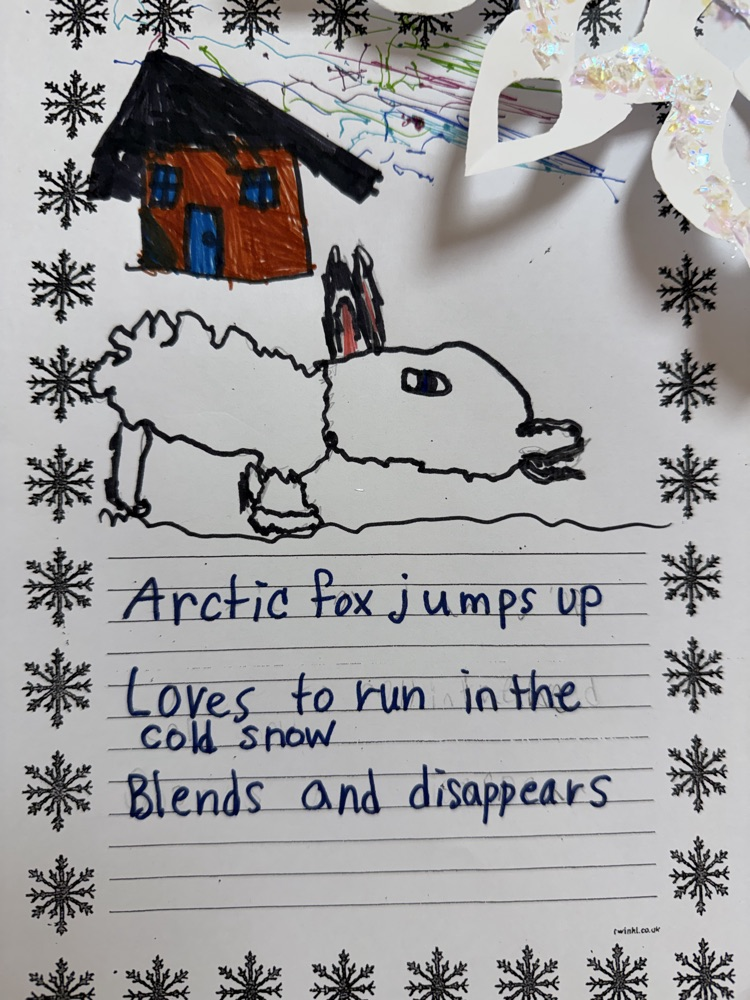 Arctic fox jumps up
Loves to run in the
cold snow
Blends and disappears
twinkl.co.uk